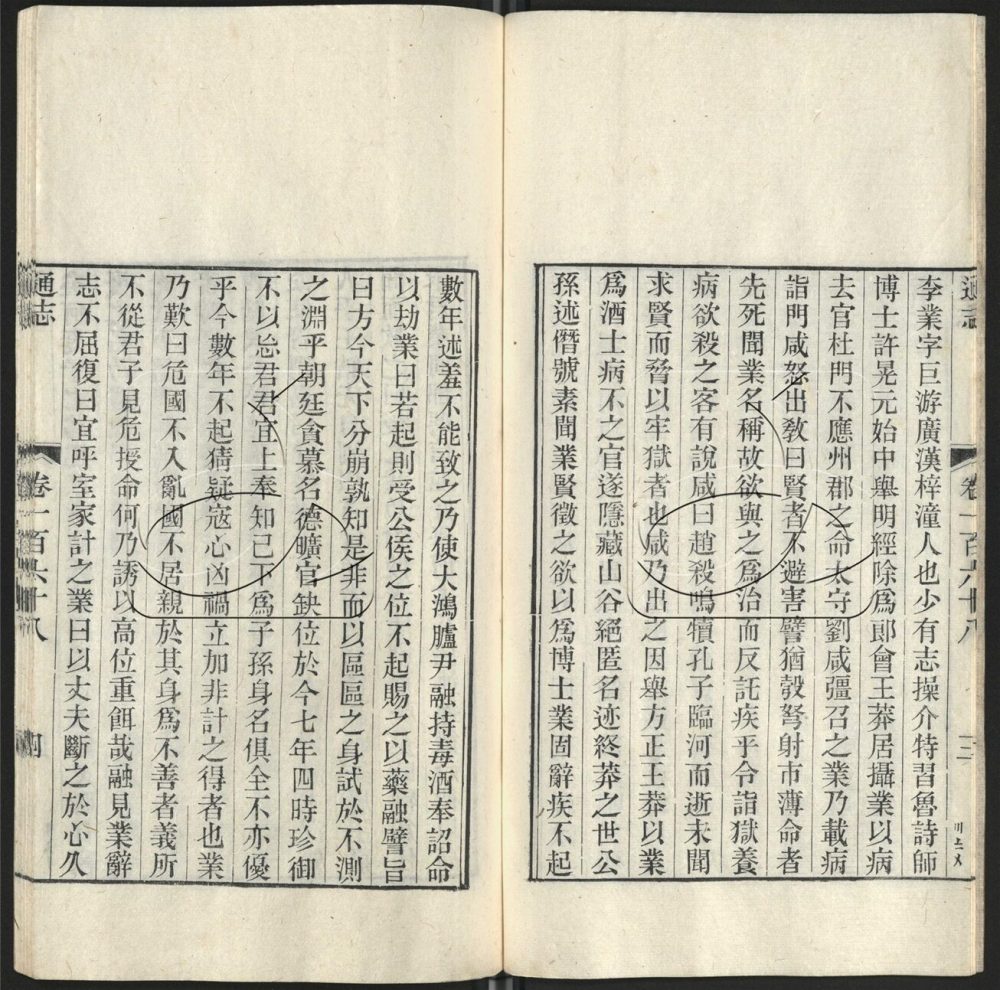 通志
卷一百六十八
三
李業字巨游廣漢梓潼人也少有志操介特習魯詩師
博士許晃元始中舉明經除爲郎會王莽居攝業以病
去官杜門不應州郡之命太守劉咸彊召之業乃載病
詣門咸怒出敎曰賢者不避害譬猶彀弩射市薄命者
先死聞業名稱故欲與之爲治而反託疾乎令詣獄養
病欲殺之客有說咸曰趙殺鳴犢孔子臨河而逝未聞
求賢而脅以牢獄者也咸乃出之因舉方正王莽以業
爲酒士病不之官遂隱藏山谷絕匿名迹終莽之世公
孫述僭號素聞業賢徵之欲以爲博士業固辭疾不起
數年述羞不能致之乃使大鴻臚尹融持毒酒奉詔命
以劫業曰若起則受公侯之位不起賜之以藥融譬旨
曰方今天下分崩孰知是非而以區區之身試於不測
之淵乎朝廷貪慕名德曠官缺位於今七年四時珍御
不以怱君君宜上奉知己下爲子孫身名俱全不亦優
乎今數年不起猜疑寇心凶禍立加非計之得者也業
乃歎曰危國不入亂國不居親於其身爲不善者義所
不從君子見危授命何乃誘以高位重餌哉融見業辭
志不屈復曰宜呼室家計之業曰以丈夫斷之於心久
通志
卷一百六十八